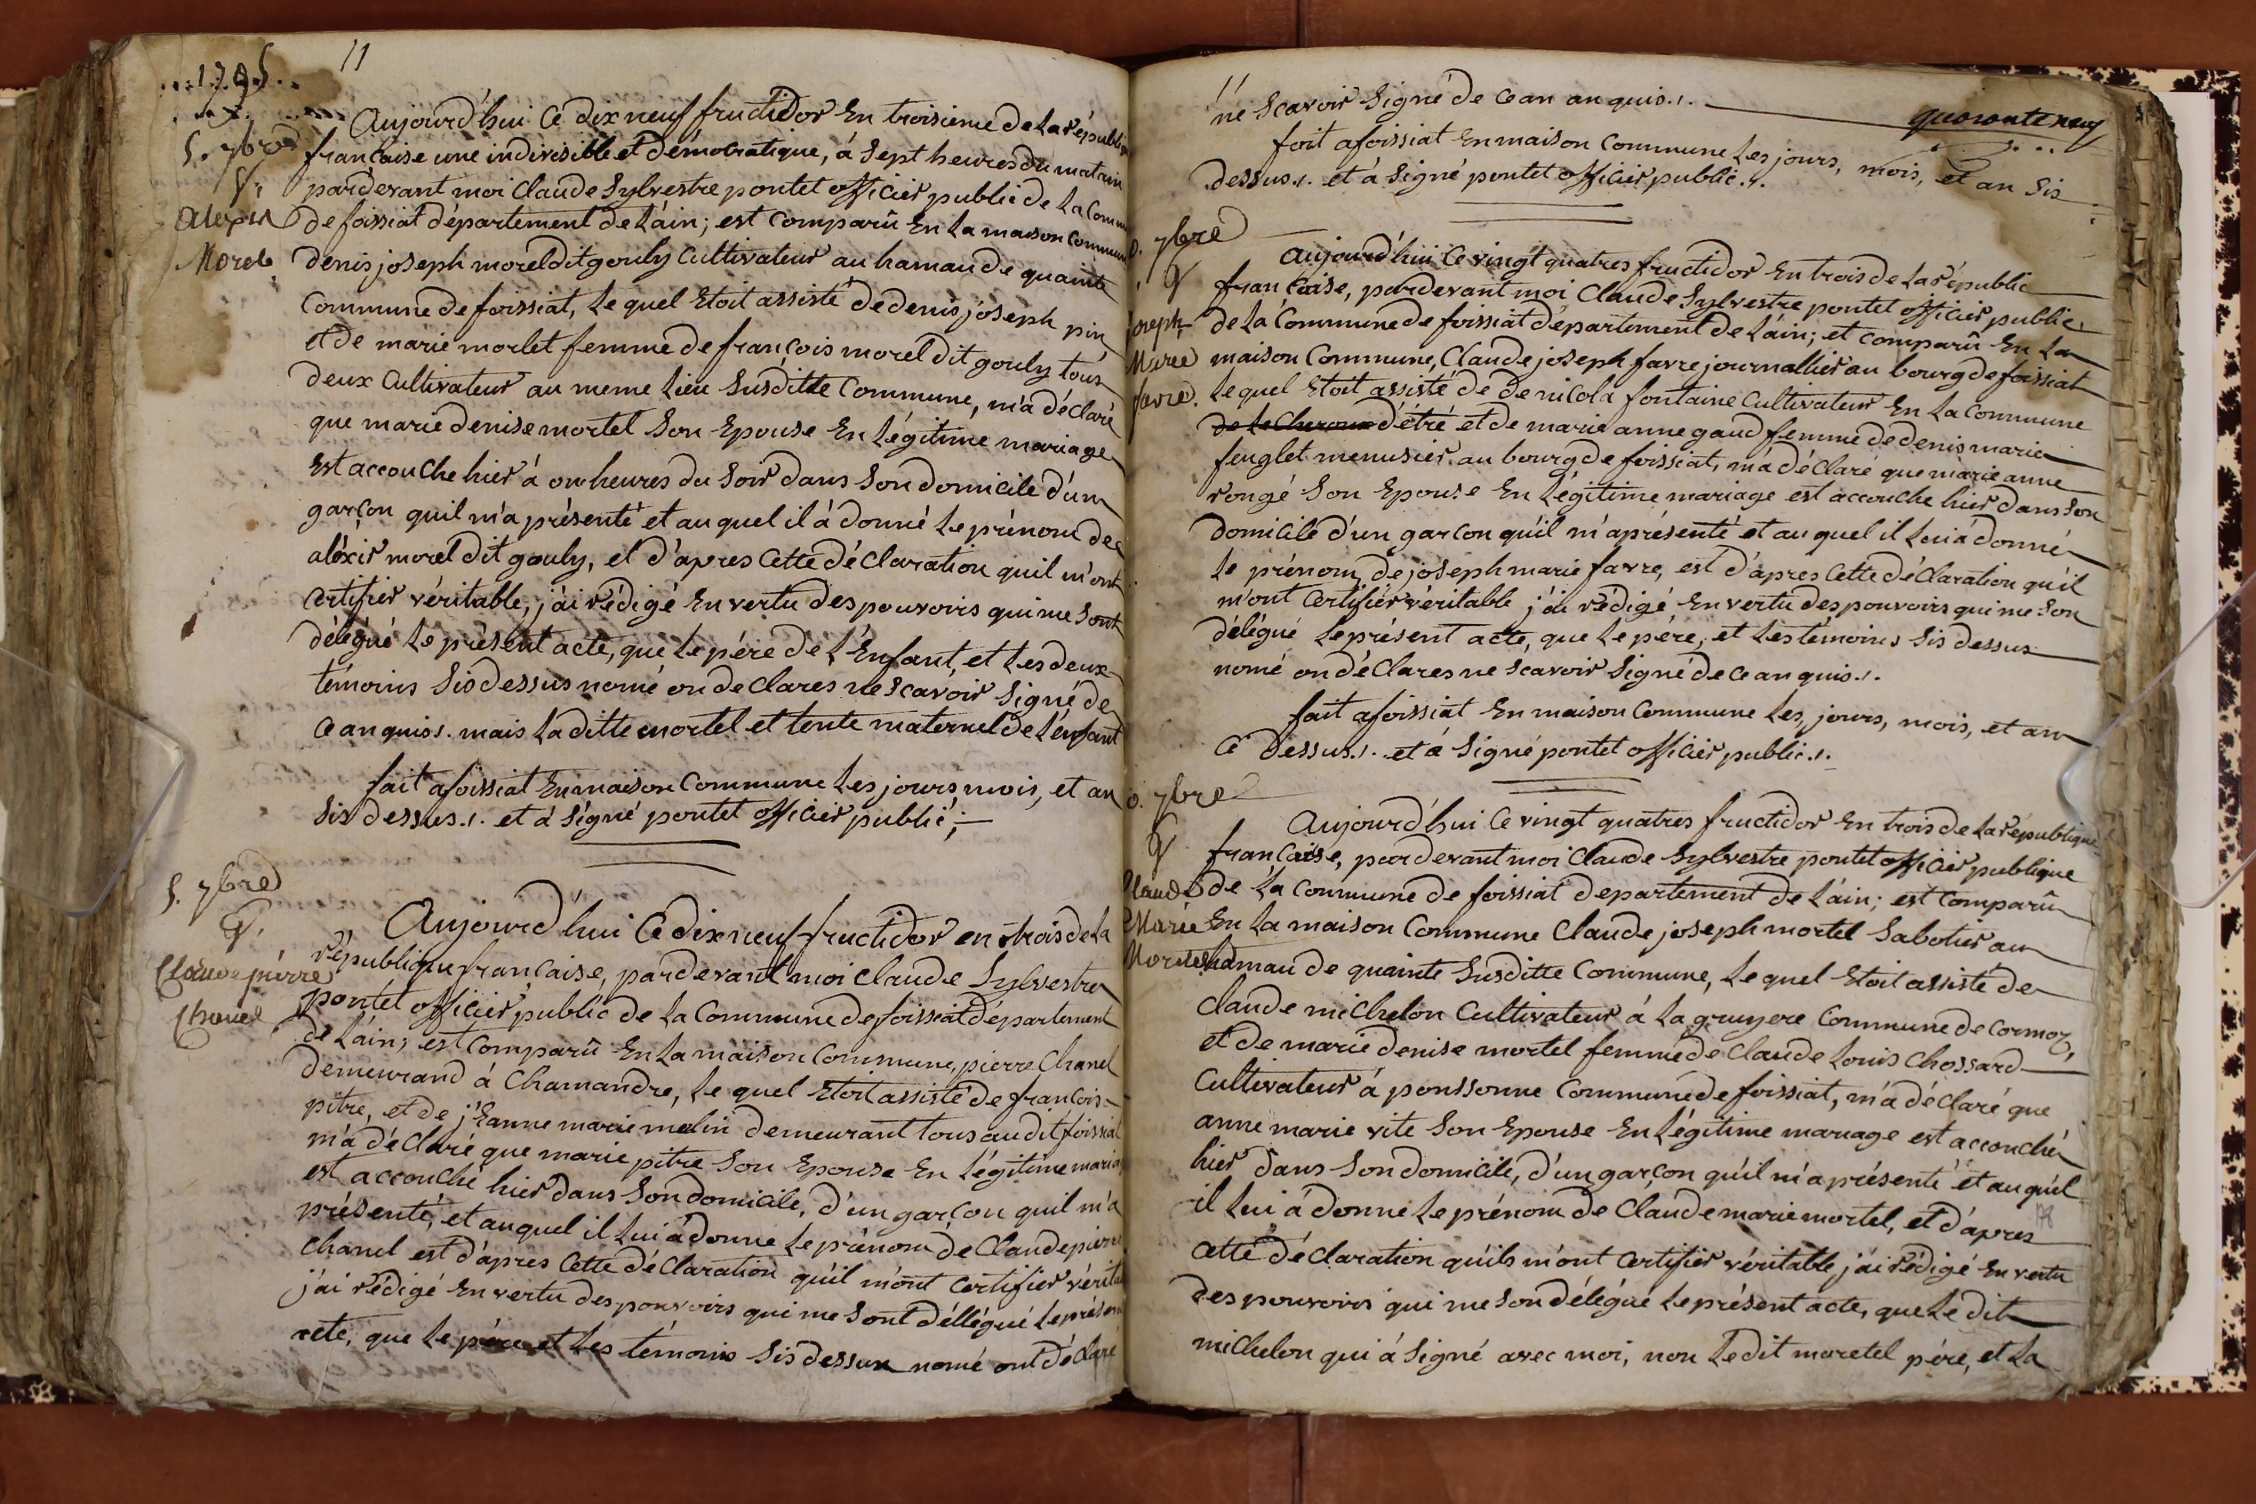 1795
11
5. 7bre
N.
Alexis
Morel
Aujourd'hui Ce dix neuf fructidor En troisieme de La républi
francaise une indivisible et démocratique, á sept heures du matin
pardevant moi Claude Sylvestre pontet officier public de La Comm
de foissiat département de L'ain; est comparû En La maison Commun
denis joseph morel dit gouly Cultivateur au hamau de quainte
Commune de foissiat, Le quel Etoit assisté de denis joseph pin
et de marie morlet femme de françois morel dit gouly tous
deux Cultivateur au meme Lieu Susditte Commune, m'a déclaré
que marie denise mortel Son Epouse En Légitime mariage
Est accouche hier á onheures du Soir dans Son domicile d'un
garçon quil m'a présenté et auquel il á donné Le prénom de
aléxis morel dit gouly, et d'apres Cette déClaration quil m'ont
Certifier véritable, j'ai rédigé En vertu des pouvoirs qui me Sont
délégué Le présent acte, que Le pére de L'Enfant, et Les deux
témoins Sis dessus nomé on de Clares ne Scavoir Signé de
Ce anquis. mais La ditte mortel et tente maternel de L'enfant
fait afoissiat En maison Commune Les jours mois, et an
Sis dessus. et á Signé pontet officier public;
5. 7bre
N.
Claude pierre
Chanel
Aujourd'hui Ce dix neuf fructidor en trois de La
république francaise, pardevant moi Claude Sylvestre
pontet officier public de La Commune de foissiat département
de L'ain; est Comparû En La maison Commune, pierre Chanel
demeurand á Chamandre, Le quel Etoit assisté de françois
pitre, et de jEanne marie melin demeurant tous audit foissiat
m'a déClaré que marie pitre Son Epouse En Légitime maria
est accouché hier dans Son domicile, d'un garçon quil m'a
présenté, et auquel il Lui á donne Le prénom de Claude pierre
Chanel est d'apres Cette déClaration qu'il m'ont Certifier vérita
j'ai rédigé En vertu des pouvoirs qui me Sont déllégué Le présen
acte, que Le pére et Les témoins Sis dessus nomé ont déclaré
11
quarante neuf
ne Scavoir Signé de Ce an anquis.
fait afoissiat En maison Commune Les jours, mois, et an Sis
dessus. et á Signé pontet officier public.
7bre
N
joseph
Marie
favre.
Aujourd'hui Ce vingt quatres fructidor En trois de La républic
francaise, pardevant moi Claude Sylvestre pontet officier public
de La Commune de foissiat département de L'ain; et comparû En La
maison Commune, Claude joseph favre journallier au bourg de foissiat
Le quel Etoit assisté de de nicola fontaine Cultivateur En La Commune
d'étré et de marie anne gaud femme de denis marie
feuglet menusier au bourg de foissiat, m'a déClaré que marie anne
rongé Son Epouse En Légitime mariage est accouche hier dans Son
domicile d'un garcon qu'il m'aprésenté et auquel il Lui á donné
Le prénom, de joseph marie favre, est d'apres Cette déClaration qu'il
m'ont Certifier véritable j'ai rédigé En vertu des pouvoirs qui me Son
délégué Le présent acte, que Le pére, et Les témoins Sis dessus
nomé on déClares ne Scavoir Signé de Ce anquis.
fait afoissiat En maison Commune Les, jours, mois, et an
Ci dessus. et á Signé pontet officier public.
7bre
N
Claude
Marie
Mortel
Aujourd'hui Ce vingt quatres fructidor En trois de La république
francaise, pardevant moi Claude Sylvestre pontet officier publique
de La Commune de foissiat departement de L'ain; est Comparû
En La maison Commune Claude joseph mortel Sabotier au
hamau de quainte Susditte Commune, Le quel Etoit assisté de
Claude miChelon Cultivateur á La gruyere Commune de Cormoz,
et de marie denise mortel femme de Claude Louis Chossard
Cultivateur á ponssonne Commune de foissiat, m'á déClaré que
anne marie vite Son Epouse En Légitime mariage est accouché
hier dans Son domicile, d'un garçon qu'il m'a présenté et auquel
il Lui á donné Le prénom de Claude marie mortel, et d'apres
Cette déClaration qu'ils m'ont Certifier véritable j'ai rédigé En vertu
des pouvoirs qui me Son délégué Le présent acte, que Le dit
miChelon qui á Signé avec moi, non Le dit moretel pére, et La